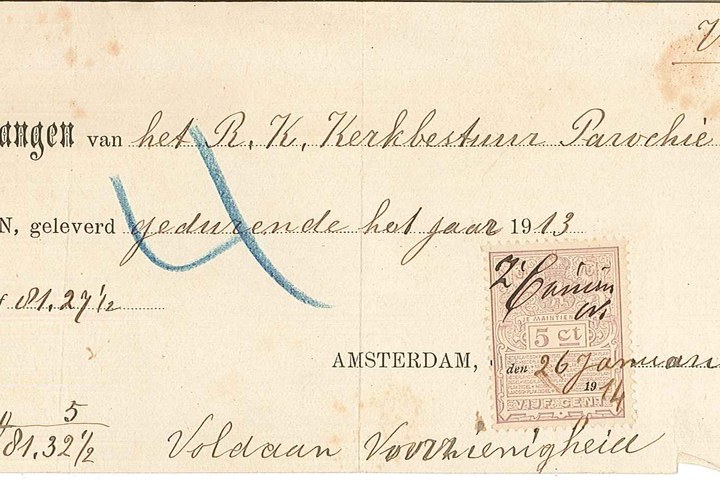 angen van het R. K. Kerkbestuur Parochie
N, geleverd gedurende het jaar 1913
f 81.27½
JE MAINTIEN
5 ct
AMSTERDAM, den 26 Januari
1914
VIJF CEN
5
81.32½ Voldaan